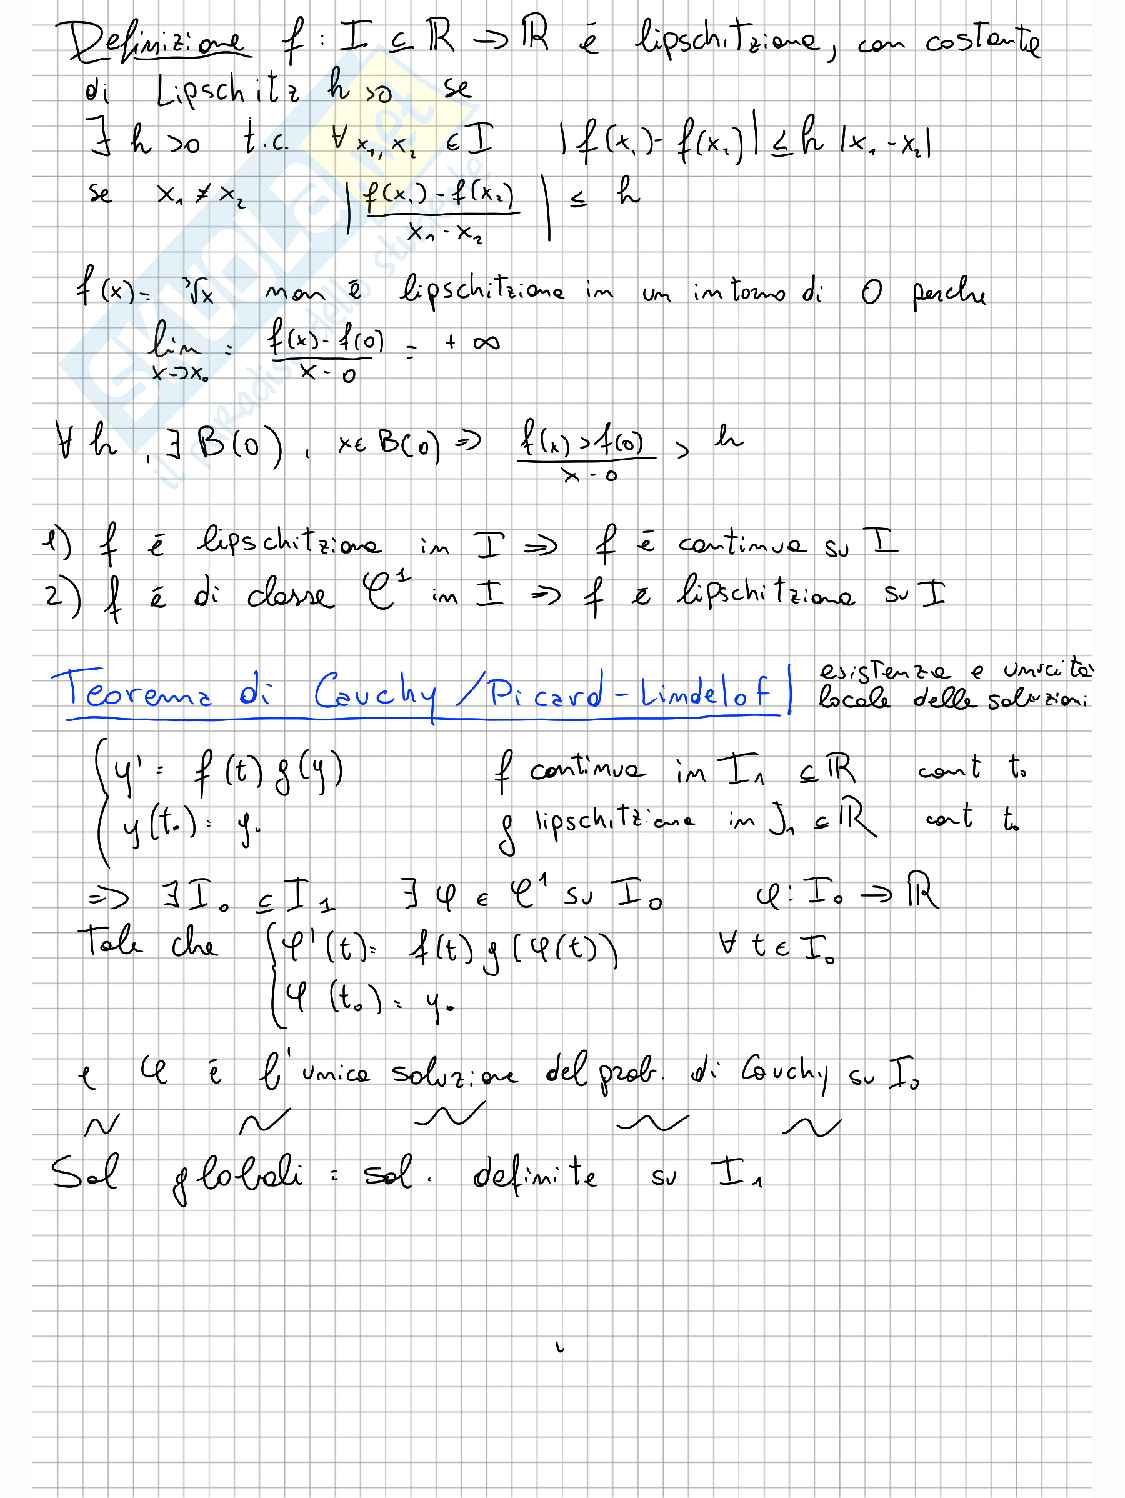 Definizione f : I ⊆ ℝ → ℝ è lipschitziana, con costante
di Lipschitz h >0 se
∃ h >0 t.c. ∀ x₁, x₂ ∈ I |f(x₁) - f(x₂)| ≤ h |x₁ - x₂|
se x₁ ≠ x₂ | f(x₁) - f(x₂) / x₁ - x₂ | ≤ h
f(x) = ³√x non è lipschitziana in un intorno di 0 perche
lim x→x₀ = f(x) - f(0) / x - 0 = + ∞
∀ h , ∃ B(0) , x∈ B(0) ⇒ f(x) > f(0) / x - 0 > h
1) f è lipschitziana in I ⇒ f è continua su I
2) f è di classe C¹ in I ⇒ f è lipschitziana su I
Teorema di Cauchy / Picard - Lindelof | esistenza e unicita
locale delle soluzioni
{ y' = f(t) g(y) f continua in I₁ ⊆ ℝ cont t₀
y(t₀) = y₀ g lipschitziana in J₁ ⊆ ℝ cont t₀
⇒ ∃ I₀ ⊆ I₁ ∃ φ ∈ C¹ su I₀ φ : I₀ → ℝ
Tale che { φ'(t) = f(t) g(φ(t)) ∀ t ∈ I₀
φ (t₀) = y₀
e φ è l'unica soluzione del prob. di Cauchy su I₀
Sol globali = sol. definite su I₁
SKUOLA.net
il paradiso dello studente